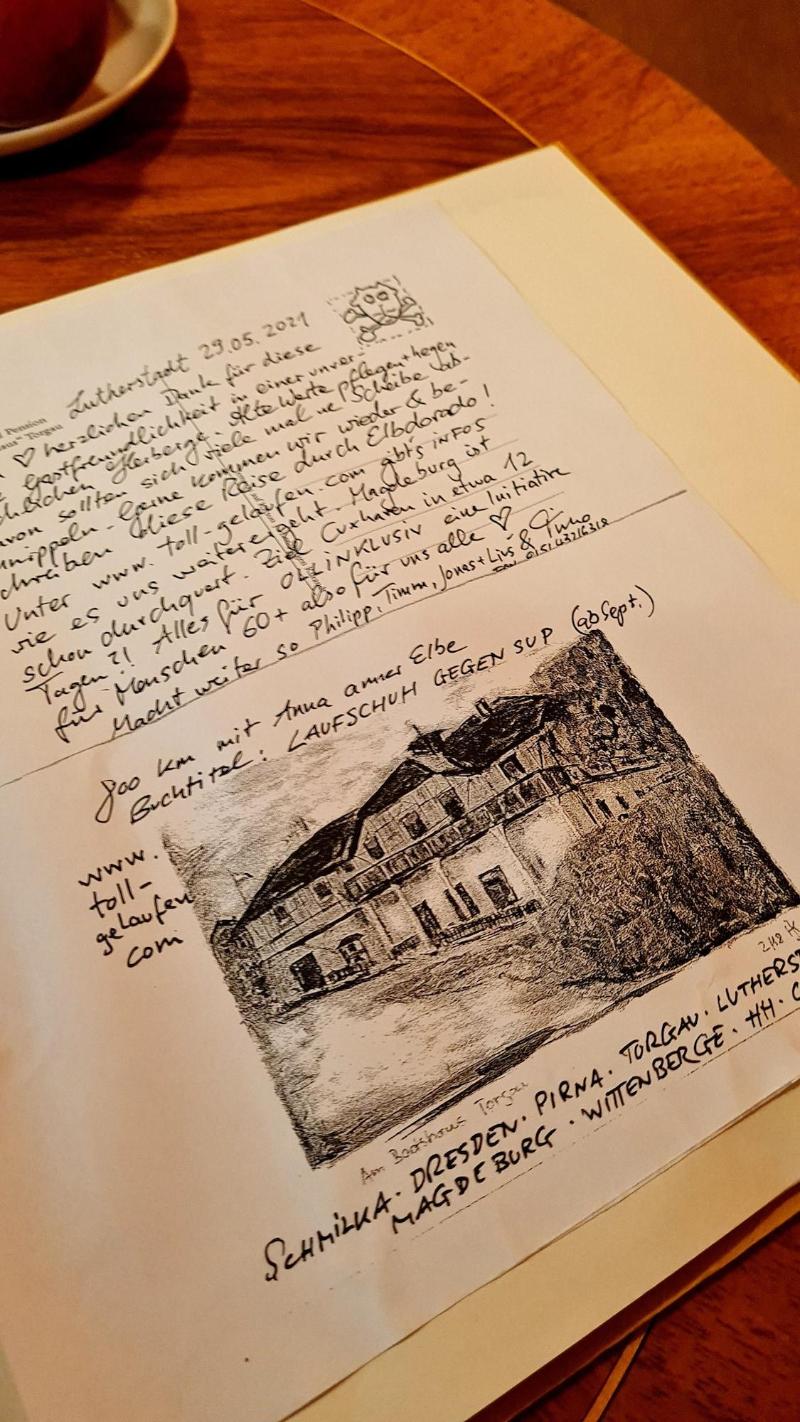 Pension
Torgau
Lutherstadt 29.05.2021
herzlichen Dank für diese
Gastfreundlichkeit in einer unver-
Herberge. Alte Werte pflegen + hegen
sollten sich viele mal ne Scheibe ab-
kommen wir wieder & be-
schreiben diese Reise durch Elbdorado!
Unter www.toll-gelaufen.com gibt's INFOS
wie es uns weitergeht. Magdeburg ist
schon durchquert. Ziel Cuxhaven in etwa 12
Tagen?! Alles für OLLINKLUSIV eine Initiative
für Menschen 60+ also für uns alle ♡
Macht weiter so Philipp, Timm, Jonas + Livs &
800 km mit Anna anner Elbe
Buchtitel: LAUFSCHUH GEGEN SUP (ab Sept.)
www.
toll-
gelaufen
com
Am Bootshaus Torgau
SCHMILKA. DRESDEN. PIRNA. TORGAU. LUTHERST
MAGDEBURG. WITTENBERGE. HH. C